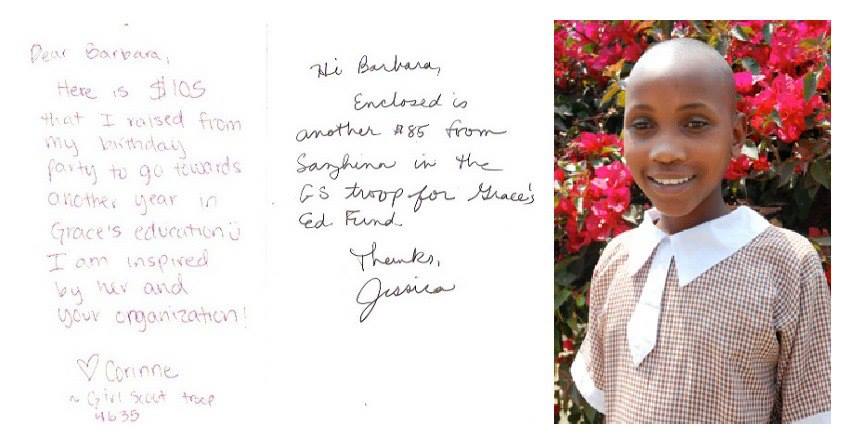 Dear Barbara,
Here is $105
that I raised from
my birthday
party to go towards
another year in
Grace's education
I am inspired
by her and
your organization!
♡ Corinne
~ Girl Scout troop
4635
Hi Barbara,
Enclosed is
another $85 from
in the
GS troop for Grace's
Ed Fund.
Thanks,
Jessica